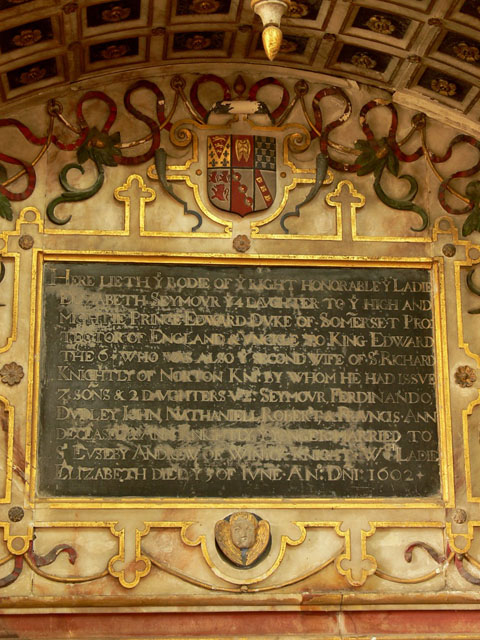 HERE LIETH Yᵉ BODIE OF Yᵉ RIGHT HONORABLE Yᵉ LADIE
ELIZABETH SEYMOVR Yᵉ 4 DAVGHTER TO Yᵉ HIGH AND
MIGHTIE PRINCE EDWARD DVKE OF SOMERSET PRO
TECTOR OF ENGLAND & VNCKLE TO KING EDWARD
THE 6ᵗ WHO WAS ALSO Yᵉ SECOND WIFE OF Sʳ RICHARD
KNIGHTLY OF NORTON KNᵗ BY WHOM HE HAD ISSVE
7 SONS & 2 DAVGHTERS VZ SEYMOVR FERDINANDO,
DVDLEY IOHN NATHANIELL ROBERT & FRANCIS ANN
DECEASED MARRIED TO
Sʳ EVSLEY ANDREW OF KNIGHT Wᶜʰ LADIE
ELIZABETH DIED Yᵉ 3 OF IVNE AN. DNI 1602